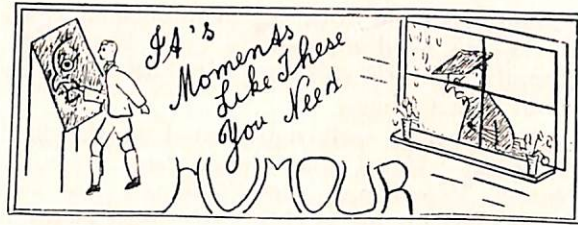 It's
Moments
Like These
You Need
HUMOUR